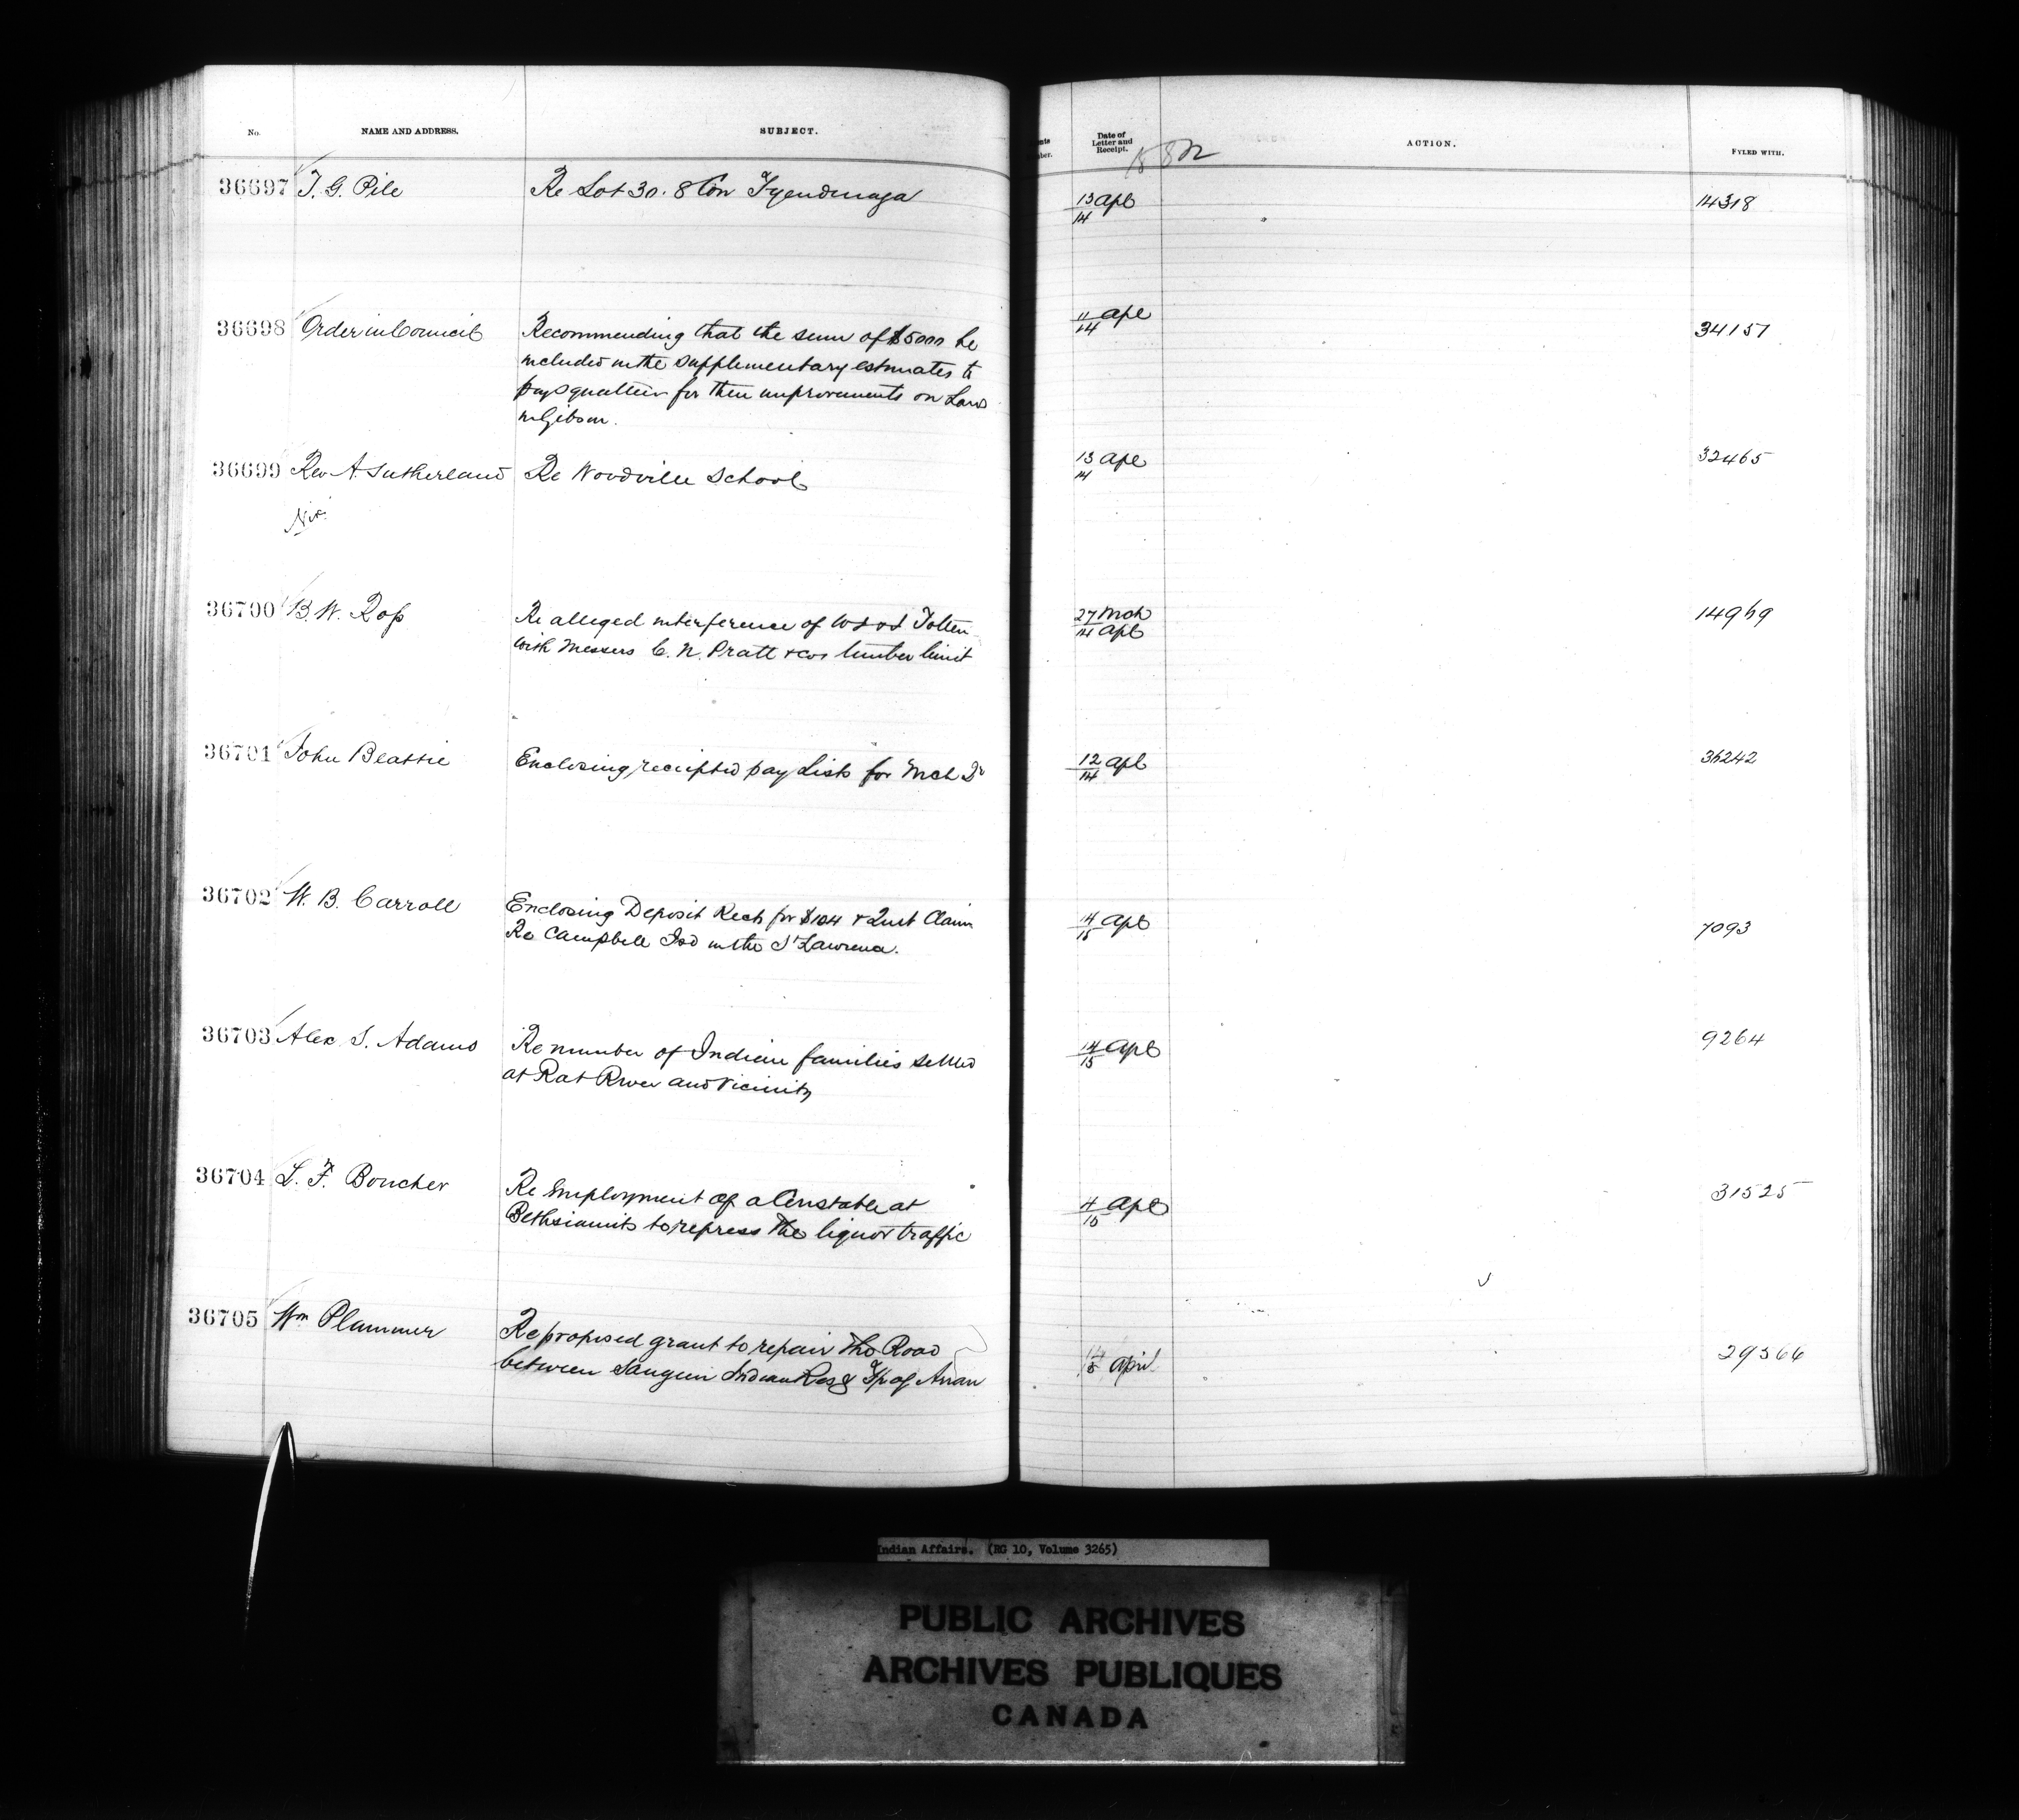 No. NAME AND ADDRESS. SUBJECT. Date of Letter and Receipt. ACTION. FYLED WITH.
1882
36697 T. G. Pile Re Lot 30. 8 Con Tyendinaga 13/14 Apl 14318
36698 Order in Council Recommending that the sum of $5000 be 11/14 Apl 34157
included in the supplementary estimates to
pay squatters for their improvements on Land
in Gibson.
36699 Rev A. Sutherland Re Woodville School 13/14 Apl 32465
36700 B. W. Ross Re alleged interference of W & J Totten 27 Mch/14 Apl 14969
with Messers C. N. Pratt & Cos limber limit
36701 John Beattie Enclosing receipted pay Lists for Mch 12/14 Apl 36242
36702 W. B. Carroll Enclosing Deposit Rect for $104 & Quit Claim 14/15 Apl 7093
Re Campbell Isd in the St Lawrence.
36703 Alex. S. Adams Re number of Indian families settled 14/15 Apl 9264
at Rat River and vicinity
36704 L. F. Boucher Re Employment of a Constable at 4/15 Apl 31525
Bethsiamits to repress the liquor traffic
36705 Wm Plummer Re proposed grant to repair the Road April 29366
between Saugeen Indian Res & Tp of Arran
Indian Affairs. (RG 10, Volume 3265)
PUBLIC ARCHIVES
ARCHIVES PUBLIQUES
CANADA